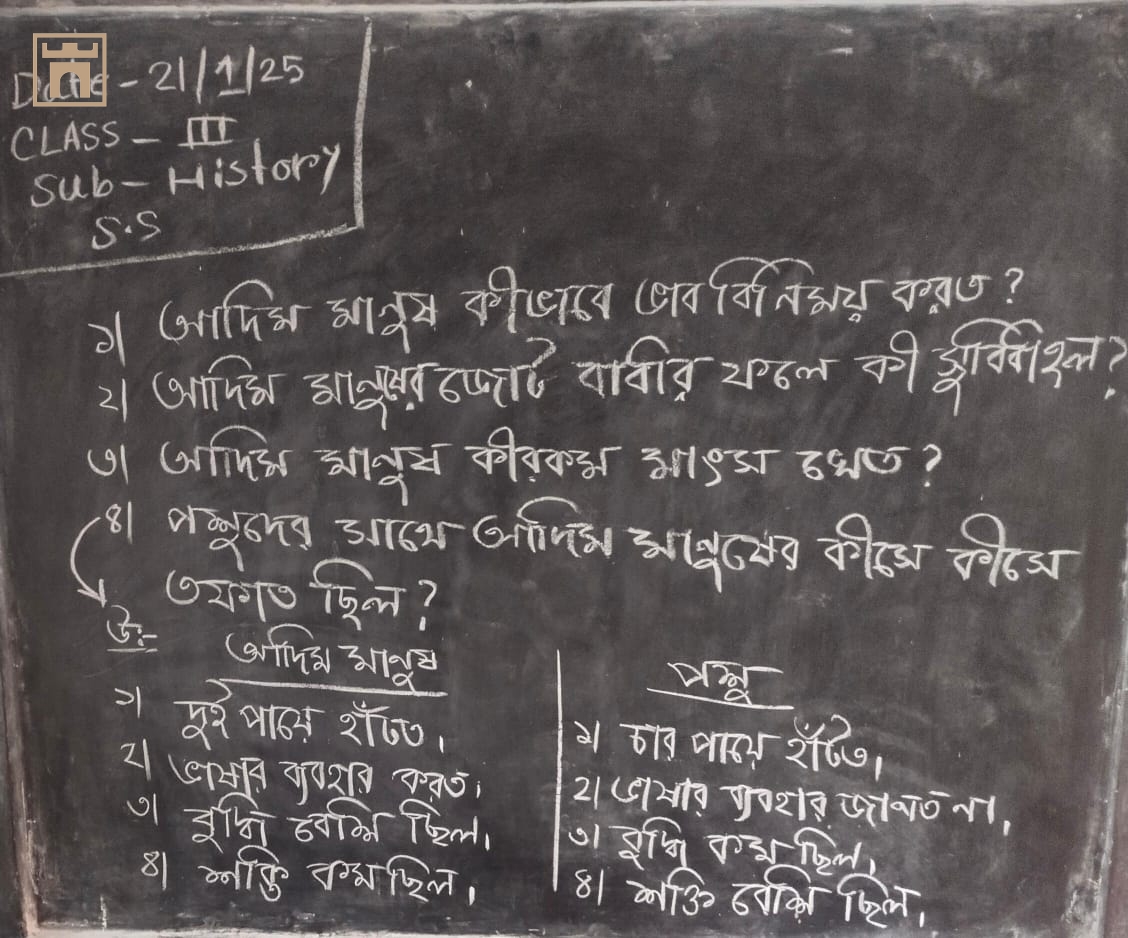 Date - 21/1/25
CLASS - III
Sub - History
S.S
১| আদিম মানুষ কীভাবে ভাব বিনিময় করত?
২| আদিম মানুষের জোট বাধার ফলে কী সুবিধা হল?
৩| আদিম মানুষ কীরকম মাংস খেত?
৪| পশুদের সাথে আদিম মানুষের কীসে কীসে
তফাত ছিল?
উঃ-
আদিম মানুষ
১| দুই পায়ে হাঁটত।
২| ভাষার ব্যবহার করত।
৩| বুদ্ধি বেশি ছিল।
৪| শক্তি কম ছিল।
পশু
১| চার পায়ে হাঁটত।
২| ভাষার ব্যবহার জানত না।
৩| বুদ্ধি কম ছিল।
৪| শক্তি বেশি ছিল।